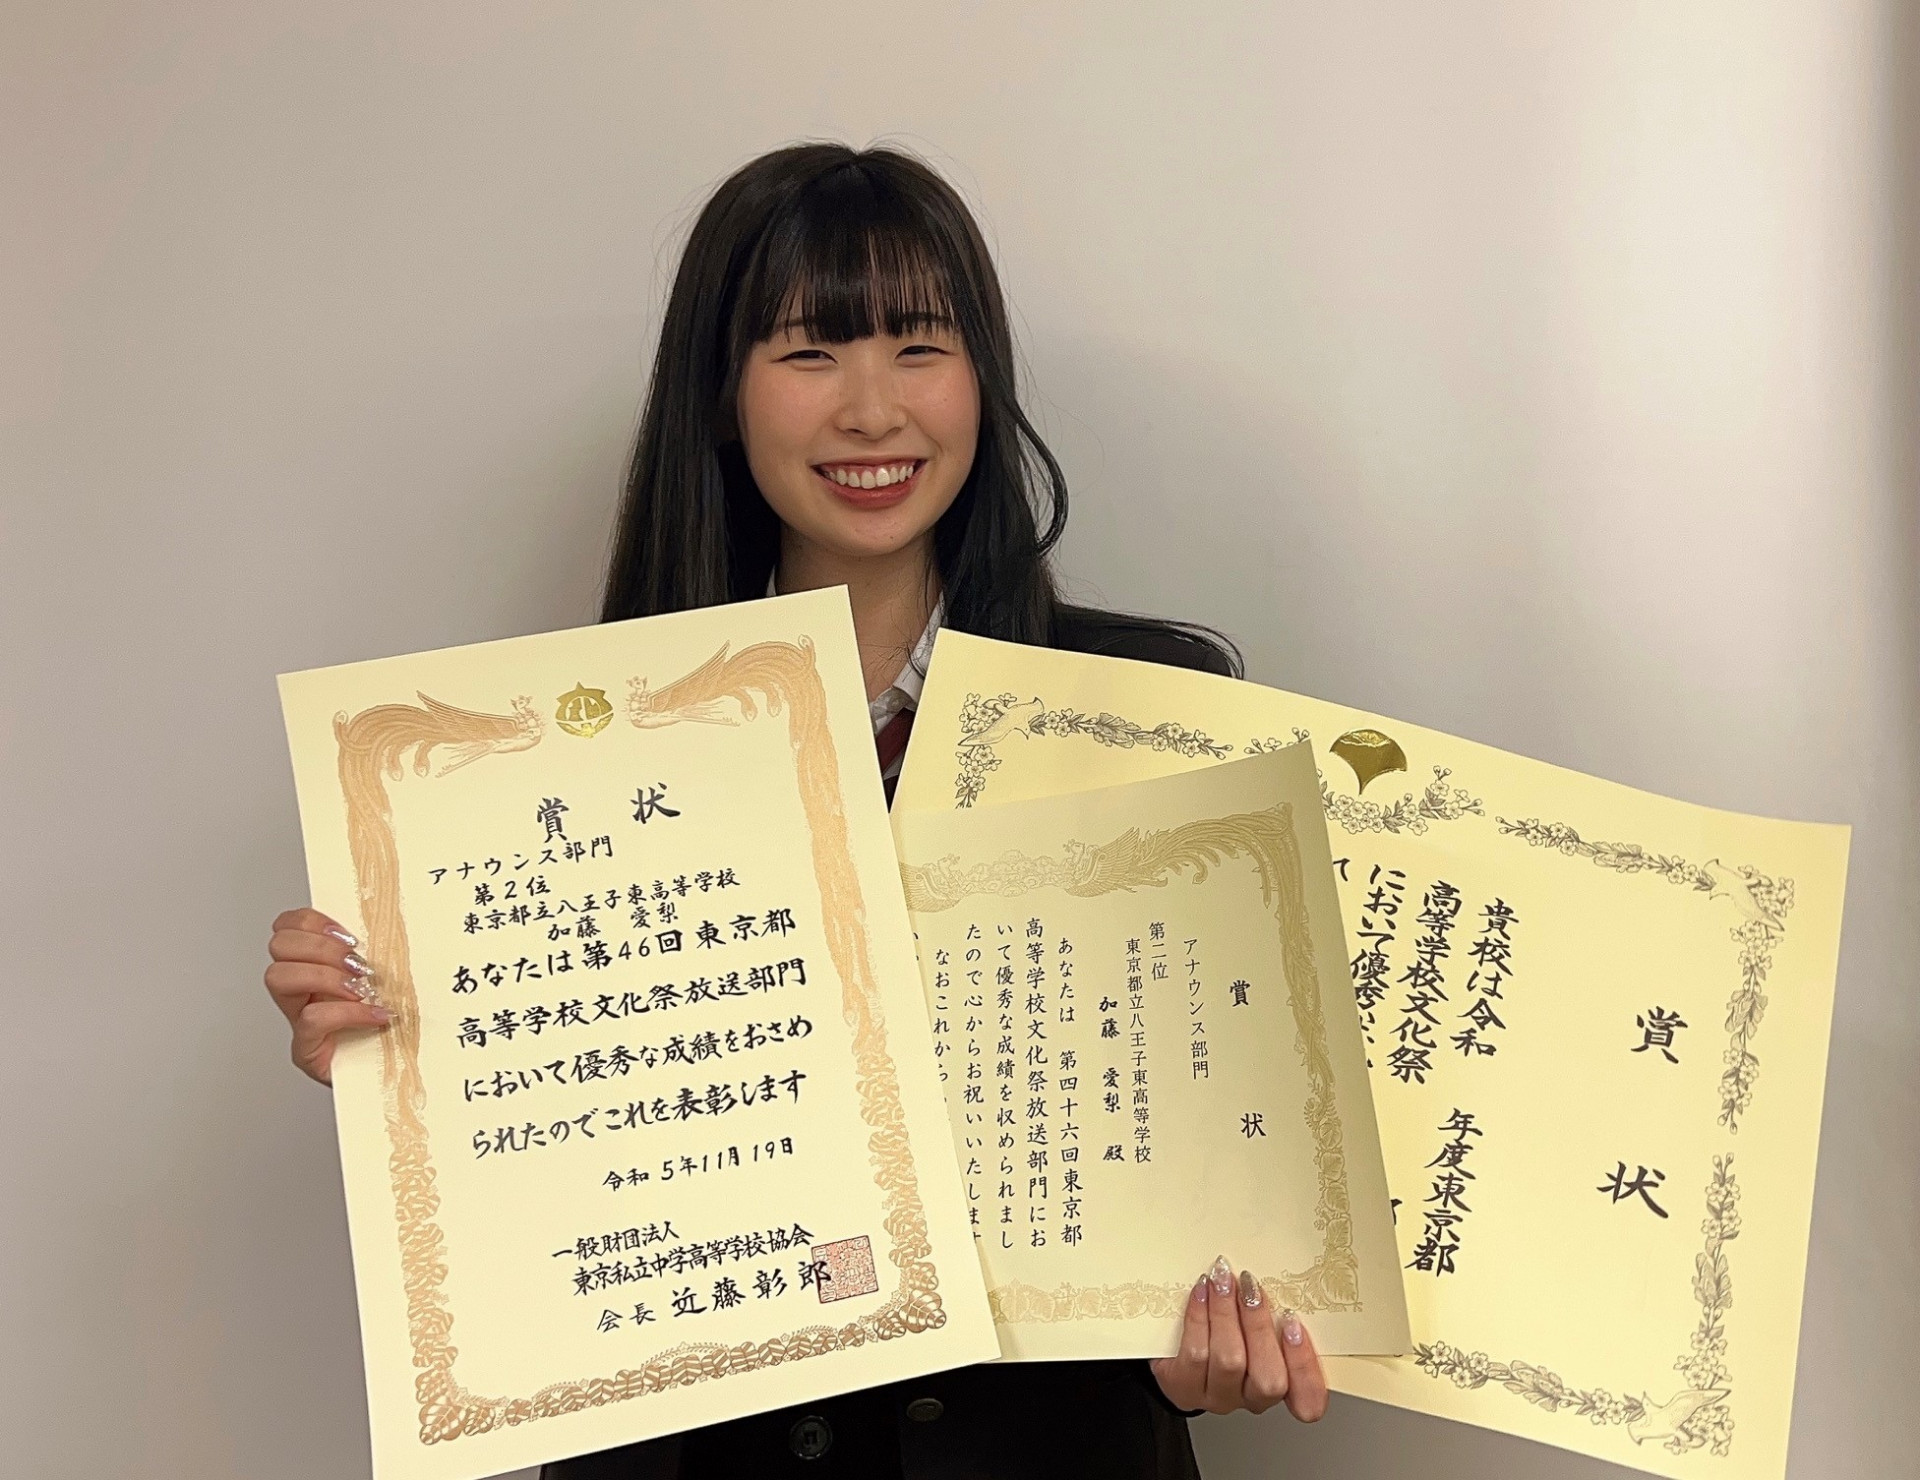 賞状
アナウンス部門
第2位
東京都立八王子東高等学校
加藤 愛梨
あなたは第46回東京都
高等学校文化祭放送部門
において優秀な成績をおさめ
られたのでこれを表彰します
令和5年11月19日
一般財団法人
東京私立中学高等学校協会
会長 近藤彰郎
賞状
アナウンス部門
第二位
東京都立八王子東高等学校
加藤 愛梨 殿
あなたは 第四十六回東京都
高等学校文化祭放送部門にお
いて優秀な成績を収められまし
たので心からお祝いいたします
なおこれから
賞状
貴校は令和 年度東京都
高等学校文化祭
において優秀